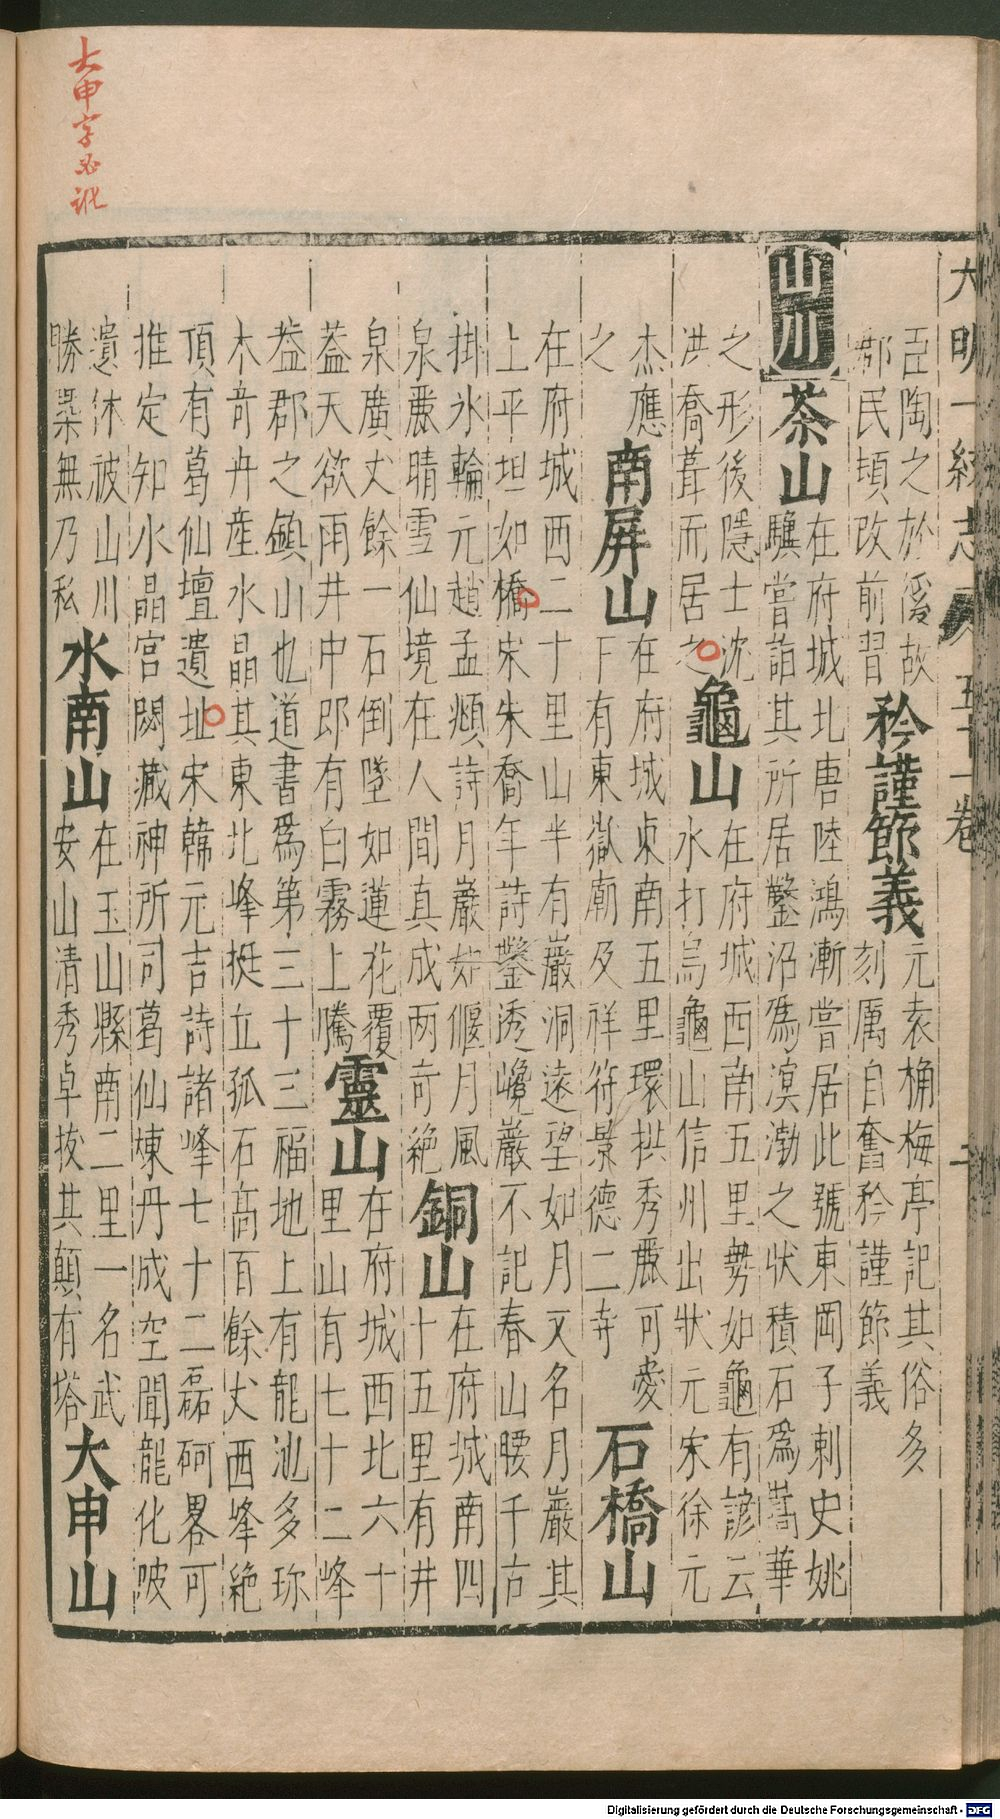 大明一統志 五十一卷
亞陶之於僞故
鄙民頃改前習
矜謹節義
元袁桷梅亭記其俗多
刻厲自奮矜謹節義
山川
茶山
在府城北唐陸鴻漸嘗居此號東岡子刺史姚
驥嘗詣其所居鑿沼爲溟渤之狀積石爲嵩華
之形後隱士沈
洪喬葺而居之
龜山
在府城西南五里勢如龜有諺云
水打烏龜山信州出狀元宋徐元
杰應
之
南屏山
在府城東南五里環拱秀麗可愛
下有東嶽廟及祥符景德二寺
石橋山
在府城西二十里山半有巖洞遠望如月又名月巖其
上平坦如橋宋朱喬年詩鑿透巉巖不記春山腰千古
掛氷輪元趙孟頫詩月巖如偃月風
泉麗晴雪仙境在人間真成两奇絶
銅山
在府城南四
十五里有井
泉廣丈餘一石倒墜如蓮花覆
蓋天欲雨井中即有白霧上騰
靈山
在府城西北六十
里山有七十二峰
葢郡之鎮山也道書爲第三十三福地上有龍池多珍
木奇卉産水晶其東北峰挺立孤石高百餘丈西峰絶
頂有葛仙壇遺址宋韓元吉詩諸峰七十二磊砢畧可
推定知水晶宫閟藏神所司葛仙煉丹成空聞龍化陂
遺休被山川
勝槩無乃私
水南山
在玉山縣南二里一名武
安山清秀卓拔其顛有塔
大申山
大申字必訛
Digitalisierung gefördert durch die Deutsche Forschungsgemeinschaft - DFG